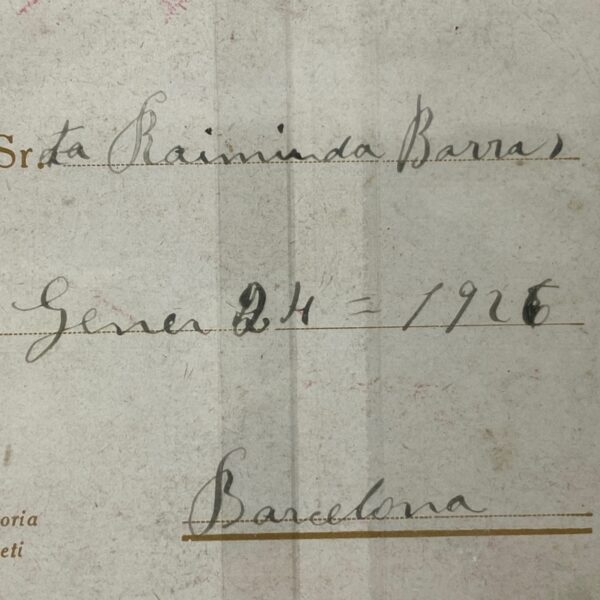 Sr.ta Raiminda Barras
Gener 24 = 1926
Barcelona
oria
eti